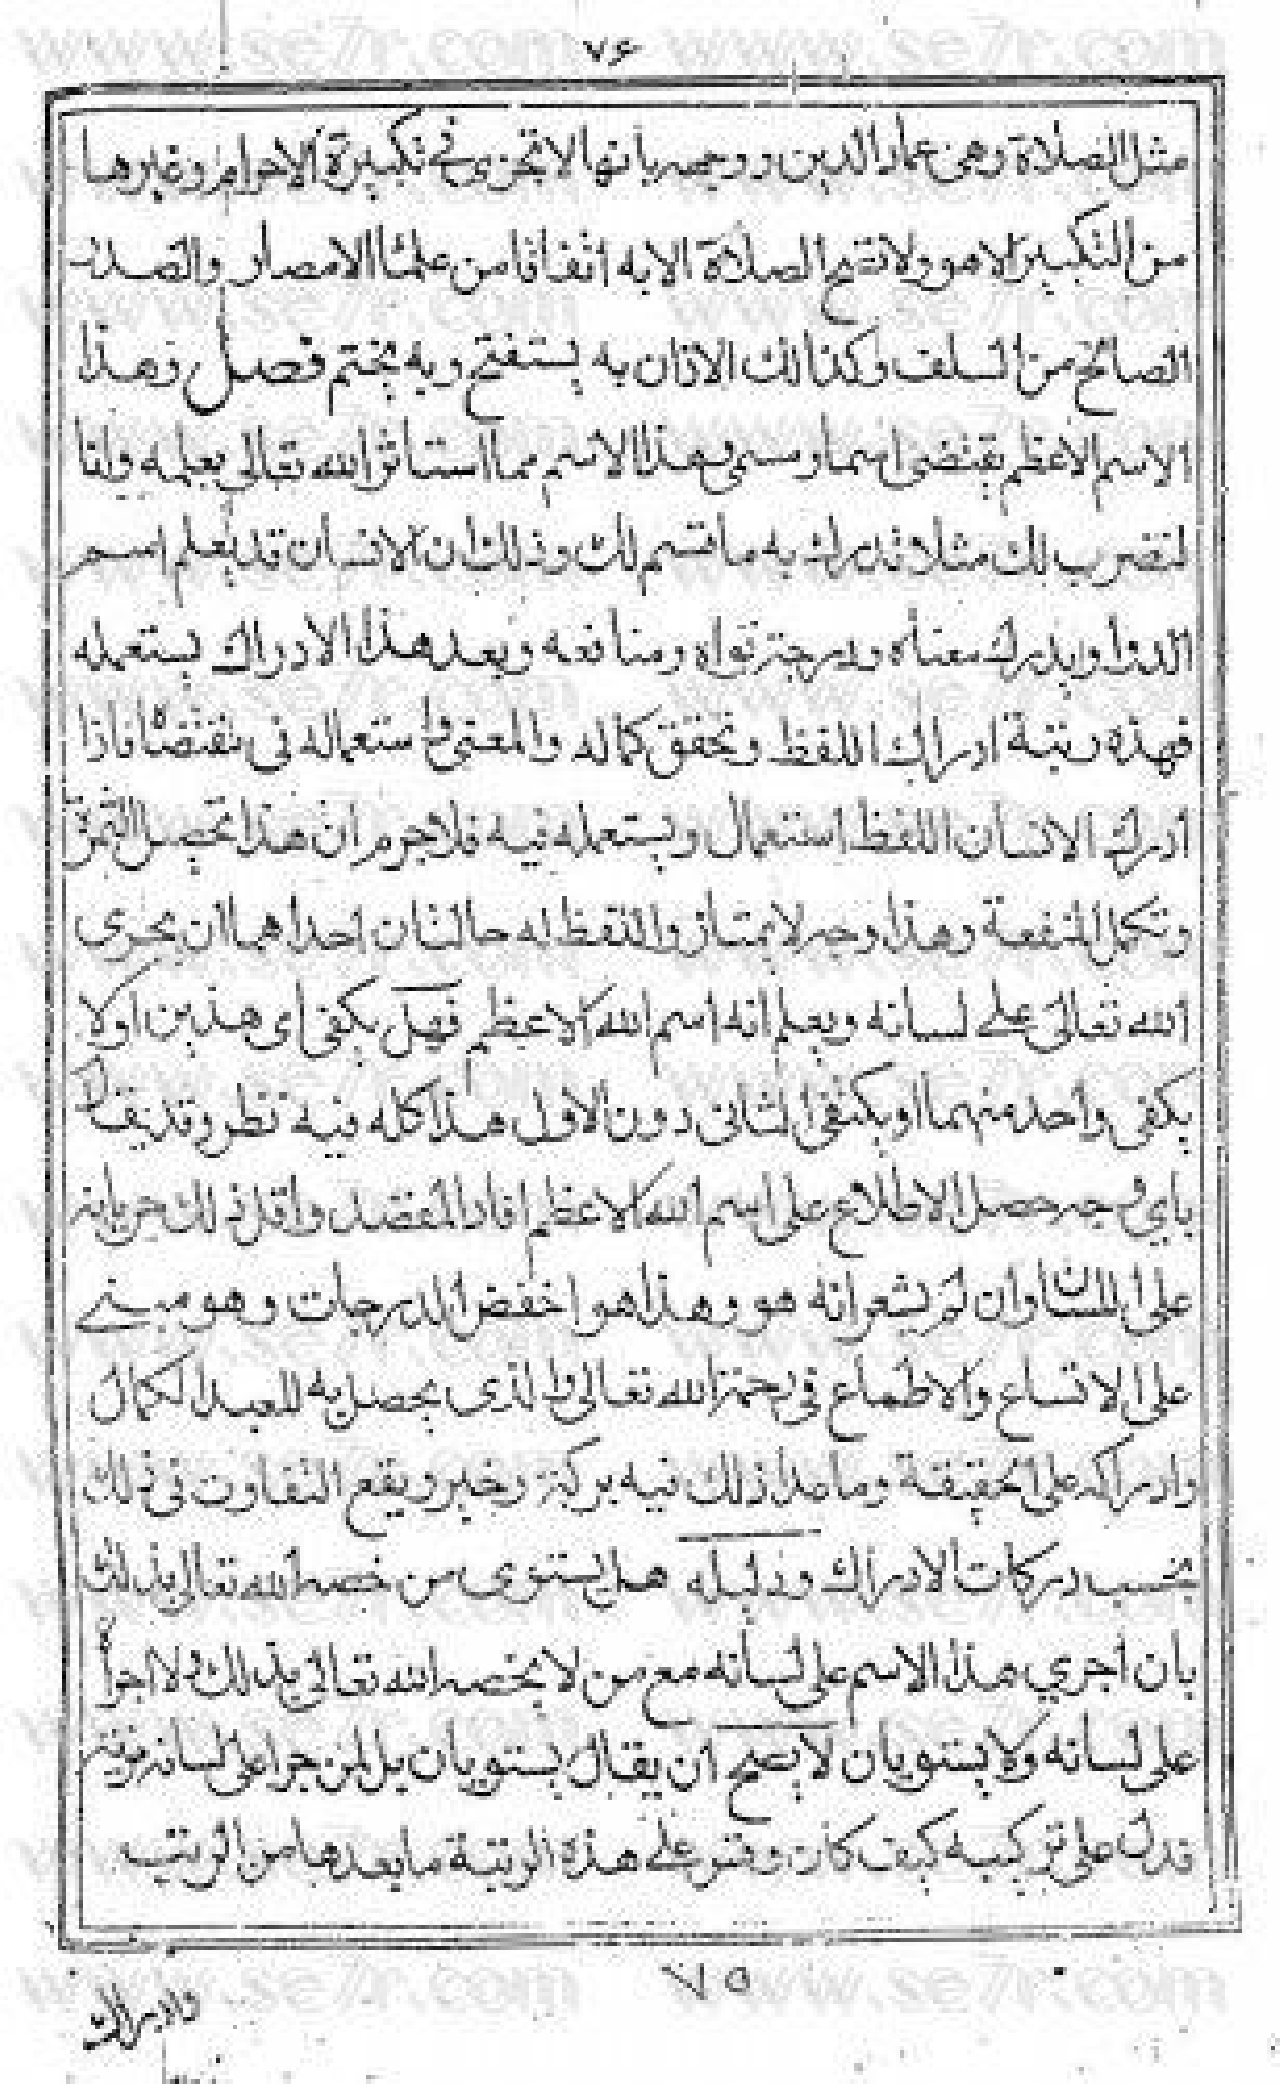 ٧٦
مثل الصلاة وهى عماد الدين ووجهه بانها لا تجزى فى تكبيرة الاحرام وغيرها
من التكبير الا هو ولا تفتح الصلاة الا به اتفاقا من علماا الامصار والصدر
الصالح من السلف وكذالك الاذان به يستفتح وبه يختم فصل وهذا
الاسم الاعظم يقتضى اسما ومسمى وهذا الاسم مما استأثر الله تعالى بعلمه وانا
لنضرب لك مثلا تدرك به ما قسم لك وذلك ان الانسان قد يعلم اسم
الدوا ويدرك معناه ودرجة قواه ومنافعه وبعد هذا الادراك يستعمله
فهذه رتبة ادراك اللفظ وتحقق كماله والمعنى واستعماله فى مقتضاه فاذا
ادرك الانسان اللفظ استعمال ويستعمله فيه فلا جرم ان هذا تحصل الثمرة
وتكمل المنفعة وهذا وجه لا يمتاز واللفظ له حالتان احداهما ان يجرى
الله تعالى على لسانه ويعلم انه اسم الله الاعظم فهل يكفى اى هذين اولا
يكفى واحد منهما او يكفى الثانى دون الاول هذا كله فيه نظر وقد يقال
باى وجه حصل الاطلاع على اسم الله الاعظم افاد المقصد واقل ذلك جريانه
على اللسان وان لم يشعر انه هو وهذا هو اخفض الدرجات وهو مبنى
على الاتساع والاطماع فى رحمة الله تعالى والذى يحصل به للعبد الكمال
وادراكه على الحقيقة وما عدا ذلك فيه بركة وخير ويقع التفاوت فى ذلك
بحسب دركات الادراك ودليله هل يستوى من خصه الله تعالى بذلك
بان اجرى هذا الاسم على لسانه مع من لا يخصه الله تعالى بذلك ولا اجراه
على لسانه ولا يستويان لا يصح ان يقال يستويان بل لمن جرا على لسانه مزية
تدل على تركيبه كيف كان وقس على هذه الرتبة ما بعدها من الرتب
٧٥
وادراك